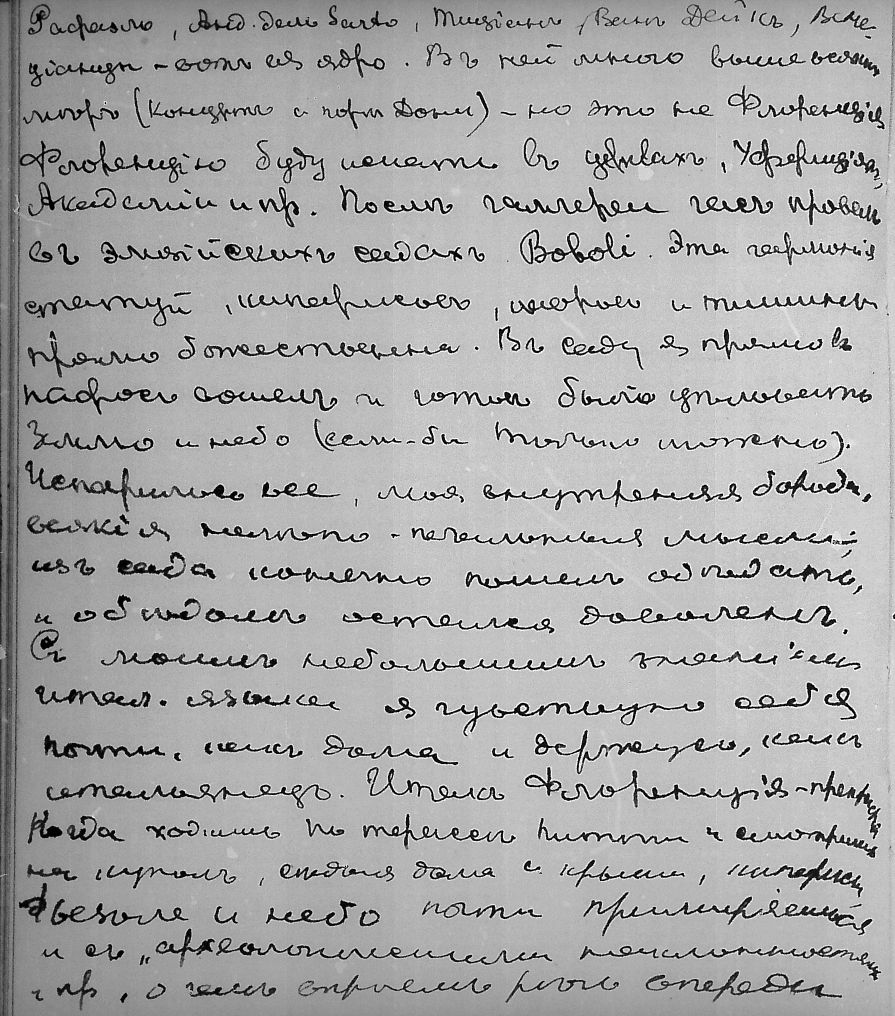 Рафаэль, Анд. дель Sarto, Тицiанъ, Ванъ Дейкъ, Вене-
цiанцы – вотъ ея ядро. Въ ней много выше всякихъ
мѣръ (Концертъ и порт Дони) – но это не Флоренцiя
Флоренцiю буду искать въ церквахъ, Уффицiяхъ,
Академiи и пр. Послѣ галлереи часъ провелъ
въ элизiйскихъ садахъ Boboli. Эта гармонiя
статуй, кипарисовъ, и тишины
прямо божественна. Въ саду я прямо въ
пафосъ вошелъ и готовъ былъ цѣловать
Землю и небо (если-бы только можно).
Испарилось все, моя внутренняя борода,
всякiя нелѣпо-печальныя мысли;
изъ сада конечно пошелъ обѣдать,
и обѣдомъ остался доволенъ.
Съ моимъ небольшимъ знанiемъ
итал. языка я чувствую себя
почти какъ дома и держусь, какъ
итальянецъ. Итакъ Флоренцiя – прекрасна
Когда ходишь по террасѣ Питти и смотришь
на куполъ, старыя дома и крыши, кипарисы
Фьезоле и небо почти примиряешься
и съ „археологическими наклонностями
и пр., о чемъ впрочемъ рѣчь впереди